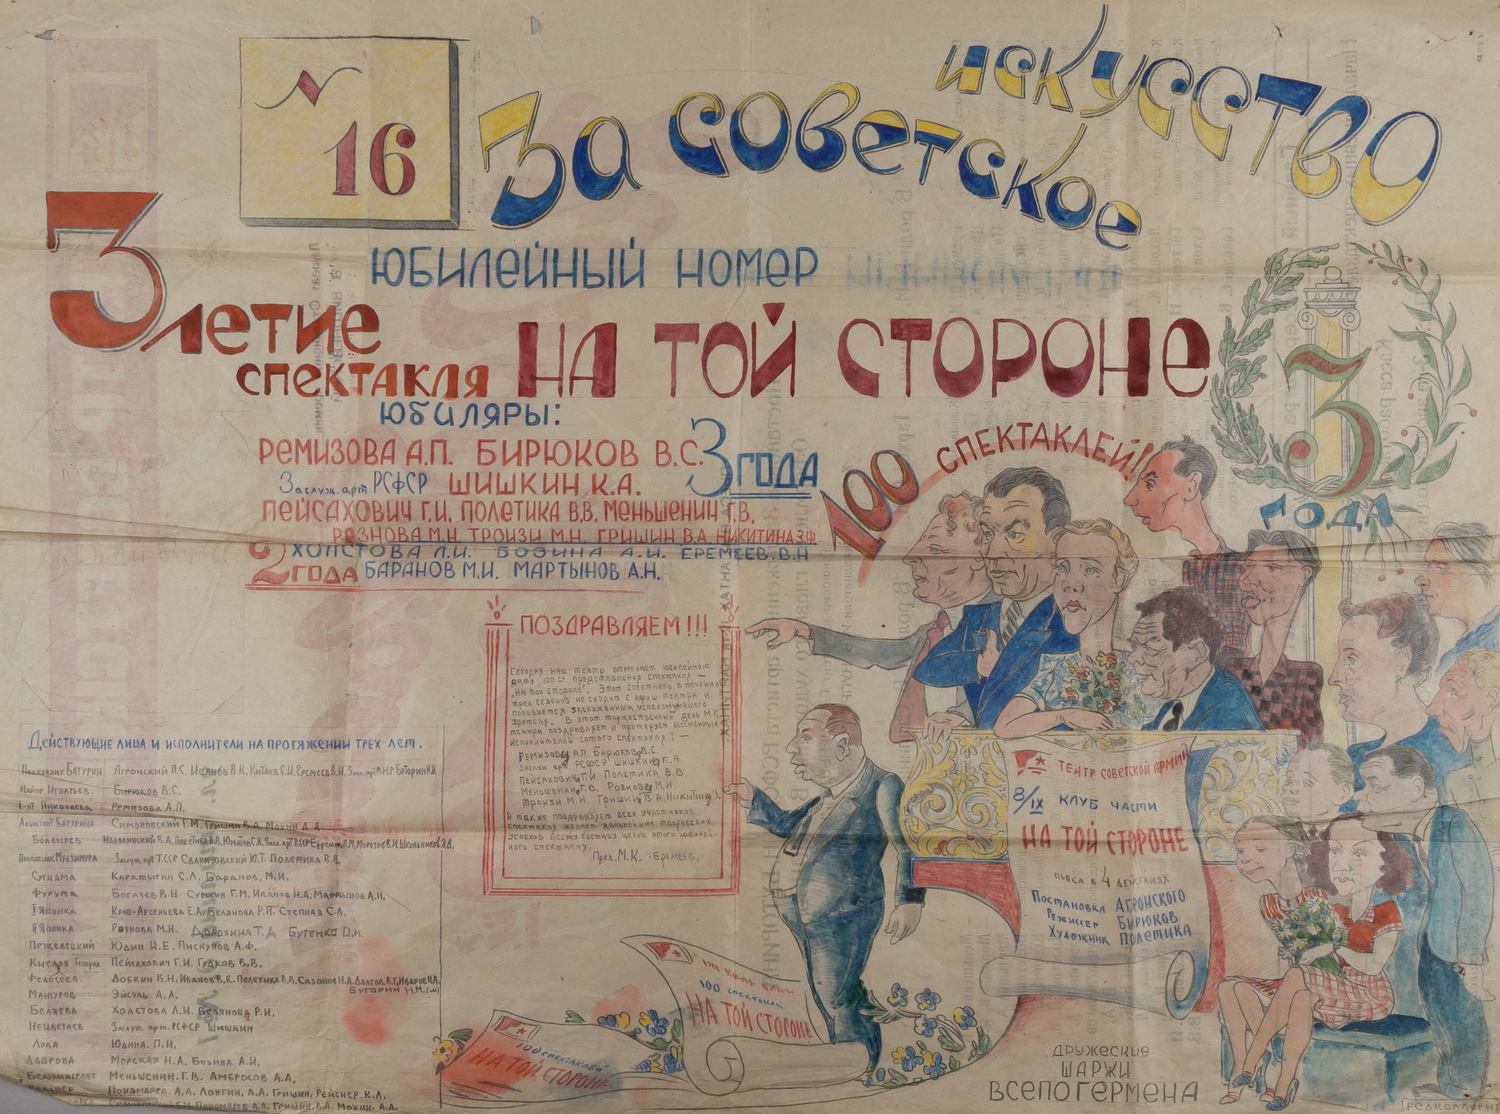 № 16
За советское искусство
ЮБИЛЕЙНЫЙ НОМЕР
3 летие
спектакля НА ТОЙ СТОРОНЕ
ЮБИЛЯРЫ:
РЕМИЗОВА А.П. БИРЮКОВ В.С. 3 ГОДА
Заслуж. арт РСФСР ШИШКИН К.А.
ПЕЙСАХОВИЧ Г.И. ПОЛЕТИКА В.В. МЕНЬШЕНИН Г.В.
РОЗНОВА М.Н. ТРОИЗИ М.Н. ГРИШИН В.А. НИКИТИНА З.Ф.
2 ГОДА ХОЛСТОВА Л.И. БОЗИНА А.И. ЕРЕМЕЕВ В.Н
БАРАНОВ М.И. МАРТЫНОВ А.Н.
100 СПЕКТАКЛЕЙ!!
3 ГОДА
ПОЗДРАВЛЯЕМ!!!
Сегодня наш театр отмечает юбилейную
дату, 100ое представления спектакля —
„На той стороне". Этот спектакль в течении
трех сезонов не сходит с афиш театра и
пользуется заслуженным успехом нашего
зрителя. В этот торжественный день М.К.
театра поздравляет и
исполнителей сотого спектакля: —
Ремизову А.П. Бирюков В.С.
Заслуж. ар. РСФСР Шишкин К.А.
Пейсахович Г.И. Полетика В.В.
Меньшенин Г.В. Рознову М.И.
Троизи М.И. Гришин В.А. Никитину З.
А также поздравляет всех участников
спектакля желает дальнейших творческих
успехов всему составу цехов этого юбилей-
ного спектакля.
Пред. М.К. - Еремеев.
Действующие лица и исполнители на протяжении трех лет.
Полковник Батурин Агронский П.С. Иванов В.К. Китаев С.И. Еремеев В.Н.
Майор Игнатьев. Бирюков В.С.
Николаева Ремизова А.П.
Адъютант Батурина Симоновский Г.М. Гришин В.А. Мохин А.А.
Полетика В.В.
Заслуж. арт ТССР Свариновский Ю.Т. Полетика В.В.
Сугияма Каратыгин С.Л. Баранов, М.И.
Фурута Богачев В.Н Сумкин Г.М. Иванов Н.А. Мартынов А.Н.
I Японка Кнап-Арсеньева Е.А. Белянова Р.И. Степная С.А.
II Японка Рознова М.Н. Дорохина Т.Д Бутенко О.Н.
Пржелесский Юдин И.Е. Пискунов А.Ф.
Пейсахович Г.И. Гудков В.В.
Доскин В.Н. Иванов В.К. Полетика В.В. Сазонов Н.А. Долгов В.Г. Иванов Н.А.
Бугорин Н.Н.
Мансуров Эйсуль А.А.
Беляева Холстова Л.И. Белянова Р.И.
Нецветаев Заслуж. арт. РСФСР Шишкин
Лола Юдина. П.И.
Лаврова Морская Н.А. Бозина А.И.
Белоэмигрант Меньшений. Г.В. Амбросов А.А.
Пономарев. А.А. Лонгин, Л.А. Гришин, Рейснер. К.А.
Симоновский Г.М. Пономарев А.А. Гришин. В.А. Мохин. А.А.
ТЕАТР СОВЕТСКОЙ АРМИИ
8/IX КЛУБ ЧАСТИ
НА ТОЙ СТОРОНЕ
ПЬЕСА В 4 ДЕЙСТВИЯХ
Постановка Агронского
Режиссер Бирюков
Художник Полетика
100 спектаклей
НА ТОЙ СТОРОНЕ
100 спектаклей
НА ТОЙ СТОРОНЕ
ДРУЖЕСКИЕ
ШАРЖИ
ВСЕПОГЕРМЕНА
Редколлегия